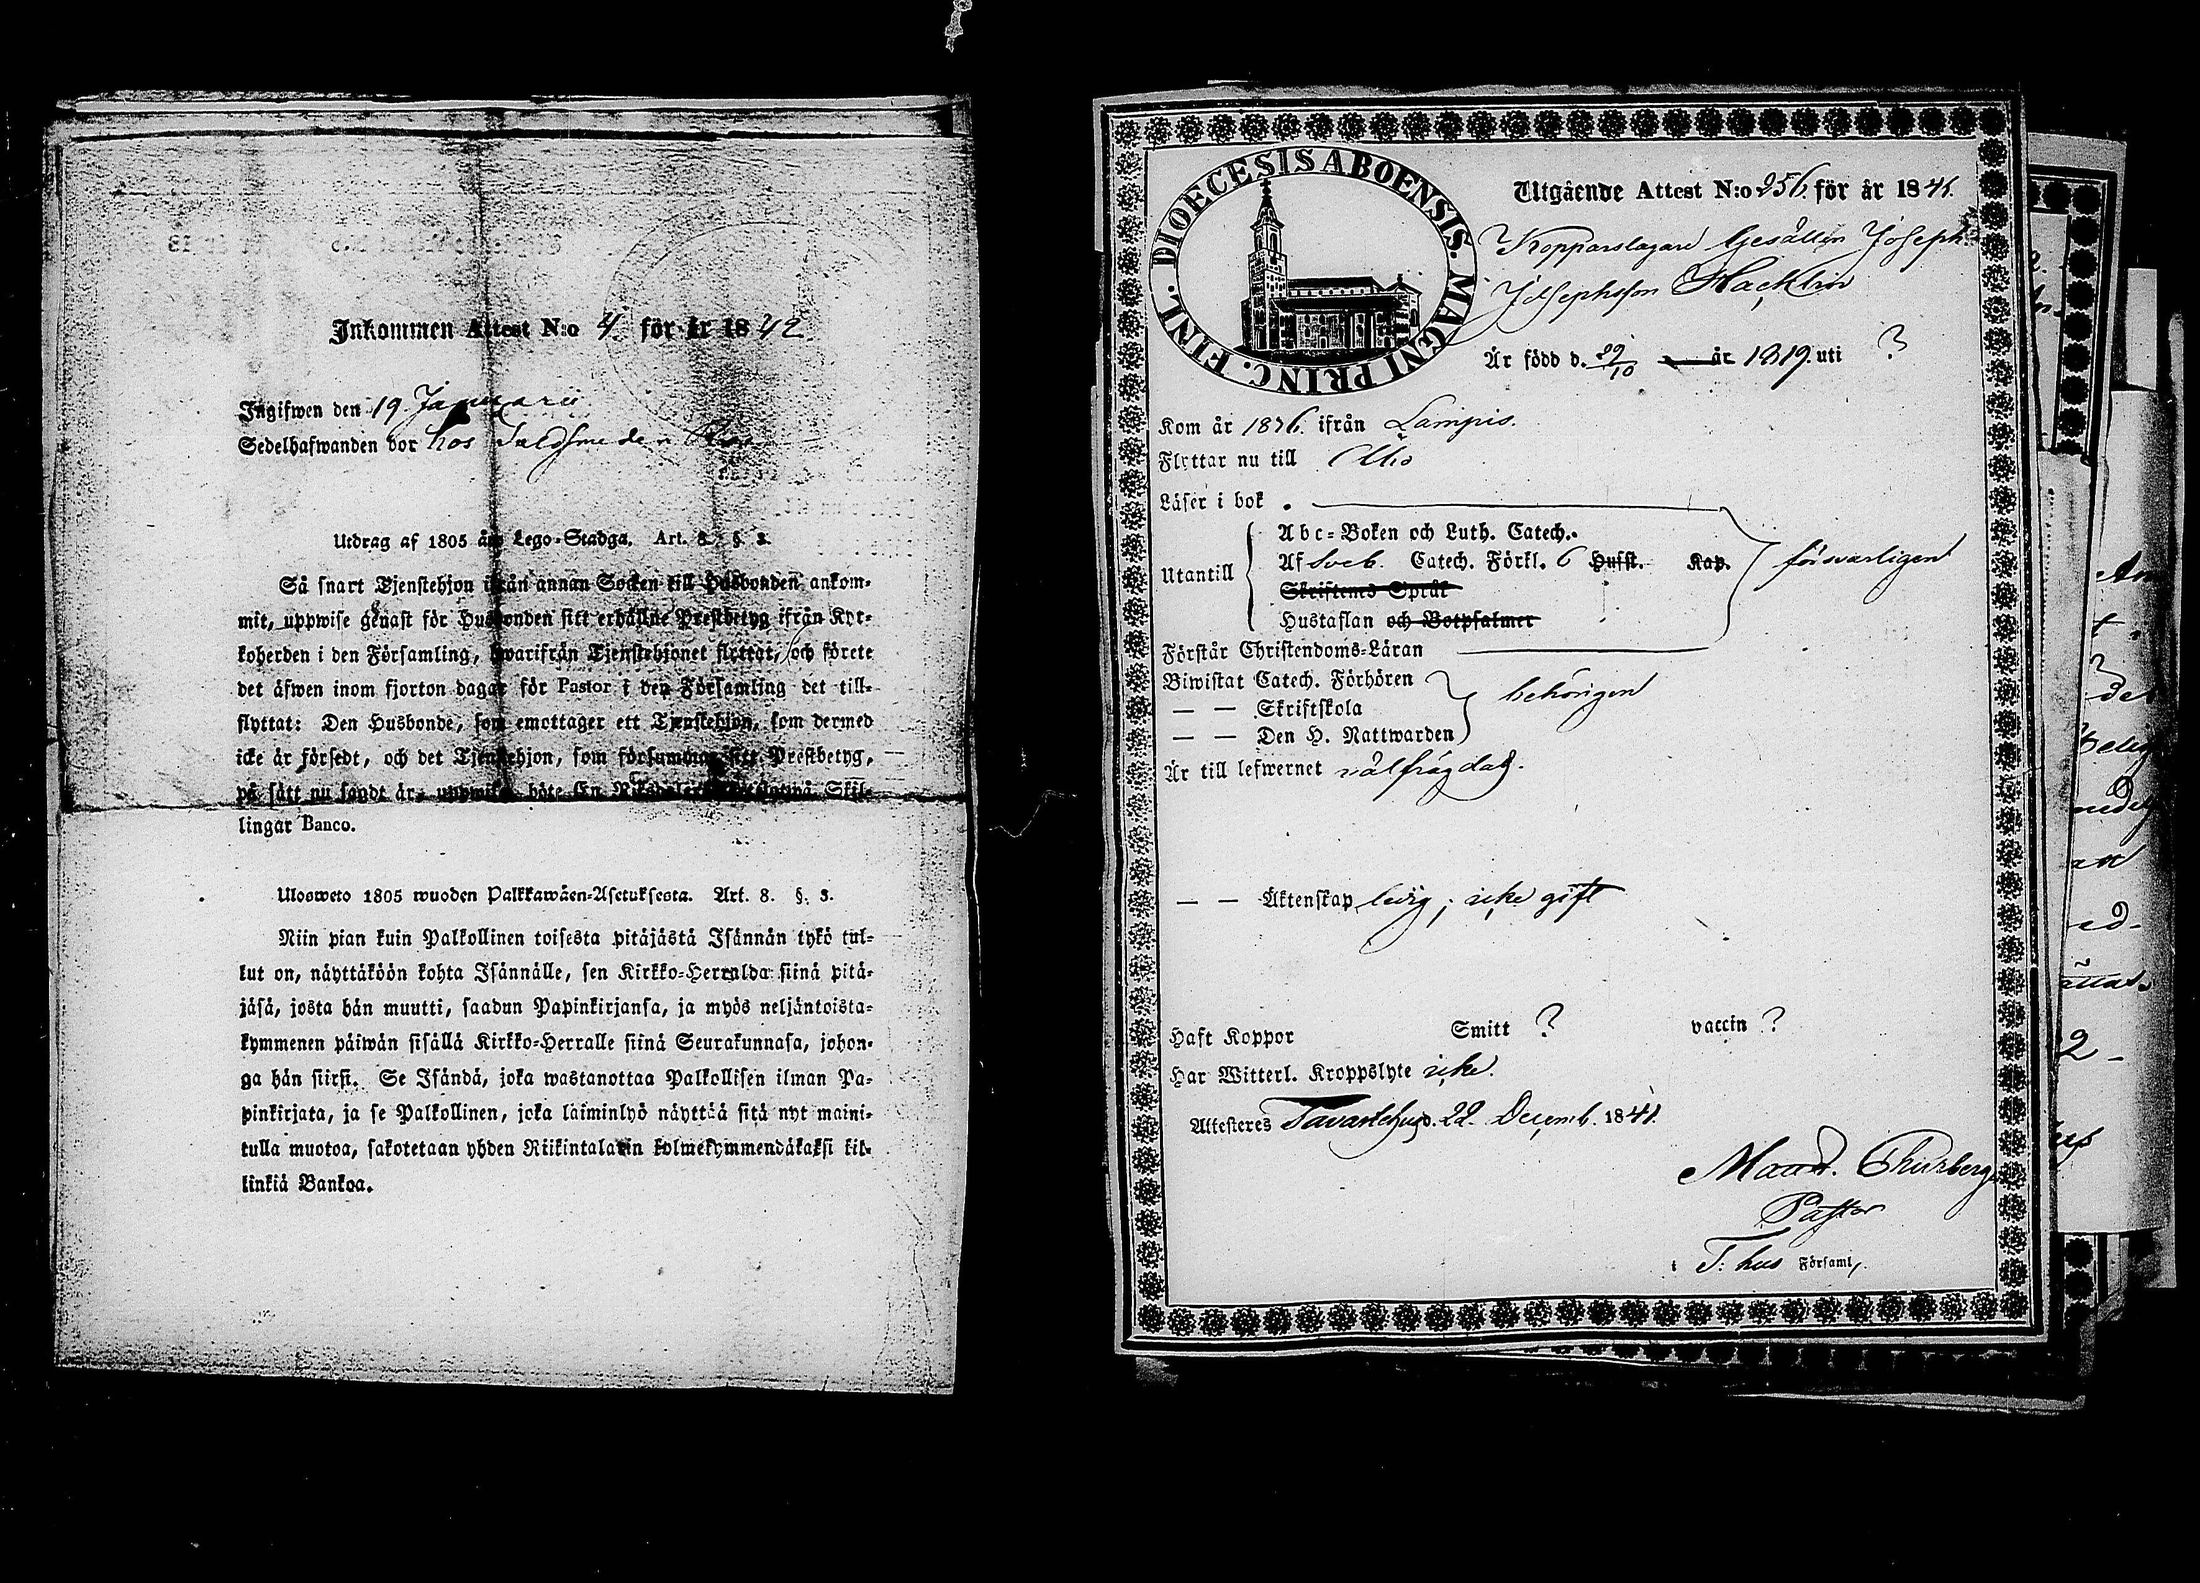 Inkommen Attest N:o 4. för år 1842.
Ingifwen den 19 Januarii
Sedelhafwanden bor hos
Utdrag af 1805 års Lego-Stadga. Art. 8. §. 3.
Så snart Tjenstehjon ifrån annan Socken till Husbonden ankom-
mit, uppwise genast för Husbonden sitt erhållne Prestbetyg ifrån Kyr-
koherden i den Församling, hwarifrån Tjenstehjonet flyttat, och förete
det äfwen inom fjorton dagar för Pastor i den Församling det till-
flyttat: Den Husbonde, som emottager ett Tjenstehjon, som dermed
icke är försedt, och det Tjenstehjon, som försummar sitt Prestbetyg,
på sätt nu sagdt är, uppwisa, böte En Riksdaler Skil-
lingar Banco.
Ulosweto 1805 wuoden Palkkawäen-Asetuksesta. Art. 8. §. 3.
Niin pian kuin Palkollinen toisesta pitäjästä Isännän tykö tul-
lut on, näyttäköön kohta Isännälle, sen Kirkko-Herralda siinä pitä-
jäsä, josta hän muutti, saadun Papinkirjansa, ja myös neljäntoista-
kymmenen päiwän sisällä Kirkko-Herralle siinä Seurakunnasa, johon-
ga hän siirsi. Se Isändä, joka wastanottaa Palkollisen ilman Pa-
pinkirjata, ja se Palkollinen, joka laiminlyö näyttää sitä nyt maini-
tulla muotoa, sakotetaan yhden Riikintalarin kolmekymmendäkaksi kil-
linkiä Bankoa.
DIOECESIS ABOENSIS. MAGNI PRINC. FINL.
Utgående Attest N:o 256. för år 1841.
Kopparslagare Gesällen Joseph
Josephsson Hacklin
Är född d. 29/10 år 1819. uti ?
Kom år 1836. ifrån Lampis.
Flyttar nu till Åbo
Läser i bok
Utantill
Abc-Boken och Luth. Catech.
Af Sveb. Catech. Förkl. 6 Hufst. Kap.
Skriftens Språk
Hustaflan och Botpsalmer
försvarligen
Förstår Christendoms-Läran
Biwistat Catech. Förhören
— — Skriftskola
— — Den H. Nattwarden
behörigen
Är till lefwernet välfrägdad.
— — Äktenskap ledig; icke gift
Haft Koppor Smitt ? vaccin ?
Har Witterl. Kroppslyte icke.
Attesteres Tavastehus d. 22. Decemb. 1841.
Thurberg
Pastor
i T:hus Församl.